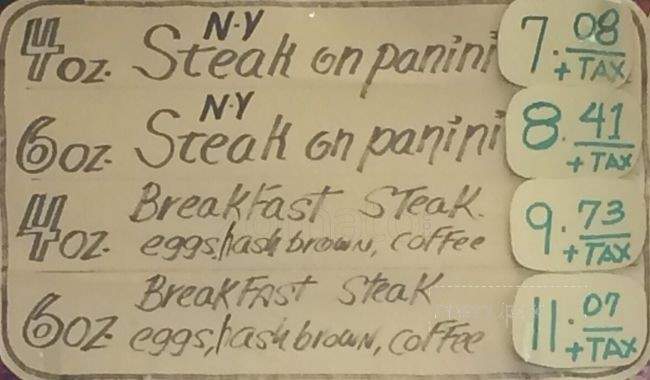 4oz. N.Y Steak on panini 7.08 + TAX
6oz. N.Y Steak on panini 8.41 + TAX
4oz. Breakfast Steak. 9.73 + TAX
eggs, hash brown, coffee
6oz. Breakfast Steak 11.07 + TAX
eggs, hash brown, coffee